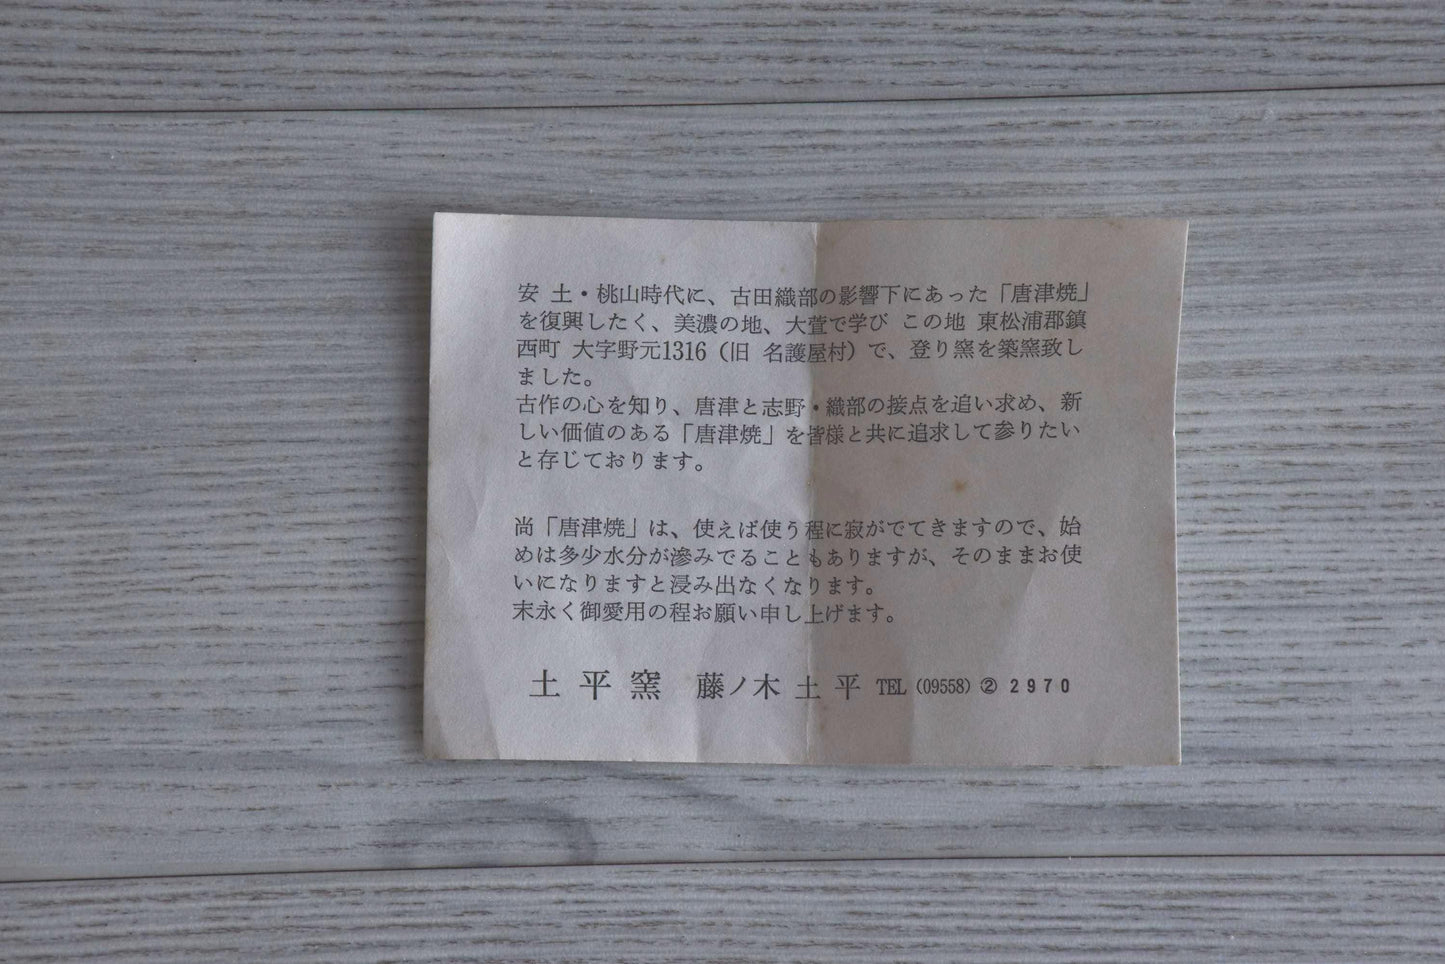 安 土・桃山時代に、古田織部の影響下にあった「唐津焼」
を復興したく、美濃の地、大萱で学び この地 東松浦郡鎮
西町 大字野元1316（旧 名護屋村）で、登り窯を築窯致し
ました。
古作の心を知り、唐津と志野・織部の接点を追い求め、新
しい価値のある「唐津焼」を皆様と共に追求して参りたい
と存じております。
尚「唐津焼」は、使えば使う程に寂がでてきますので、始
めは多少水分が滲みでることもありますが、そのままお使
いになりますと浸み出なくなります。
末永く御愛用の程お願い申し上げます。
土平窯 藤ノ木土平 TEL（09558）② 2970